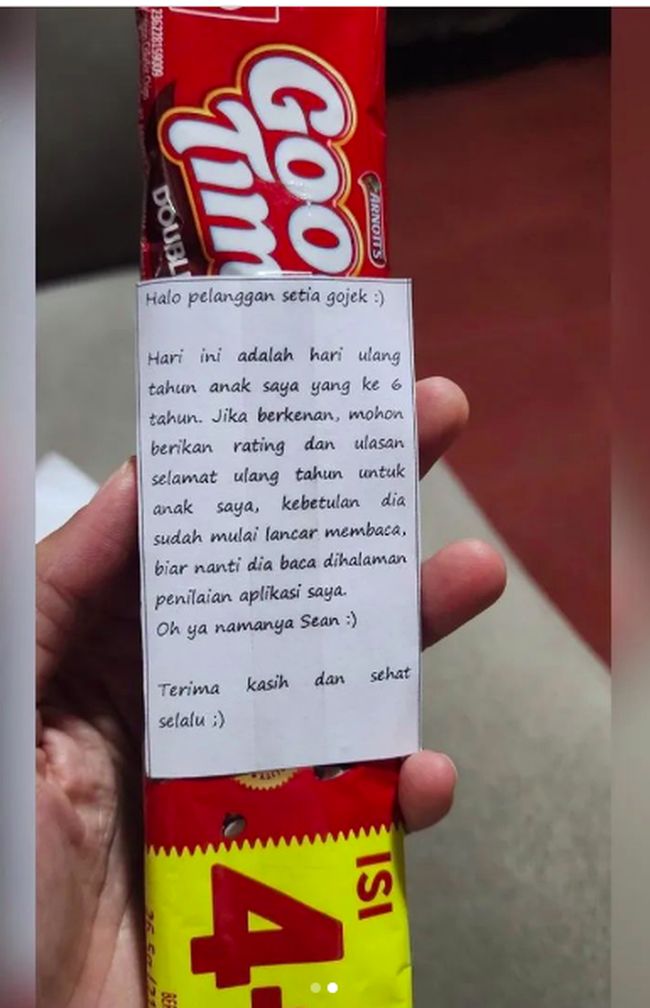 GOO
TIM
ARNOTT'S
DOUBL
Halo pelanggan setia gojek :)
Hari ini adalah hari ulang
tahun anak saya yang ke 6
tahun. Jika berkenan, mohon
berikan rating dan ulasan
selamat ulang tahun untuk
anak saya, kebetulan dia
sudah mulai lancar membaca,
biar nanti dia baca dihalaman
penilaian aplikasi saya.
Oh ya namanya Sean :)
Terima kasih dan sehat
selalu ;)
ISI
4